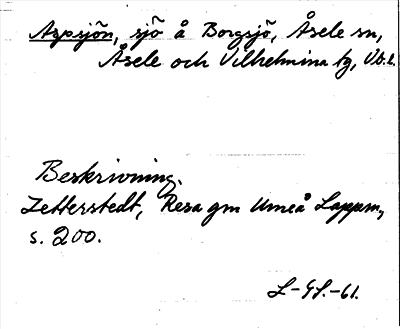 Aspsjön, sjö å Borgsjö, Åsele sn,
Åsele och Vilhelmina tg, Vb.l.
Beskrivning.
Zetterstedt, Resa gm Umeå Lappm,
s. 200.
L-GS.-61.